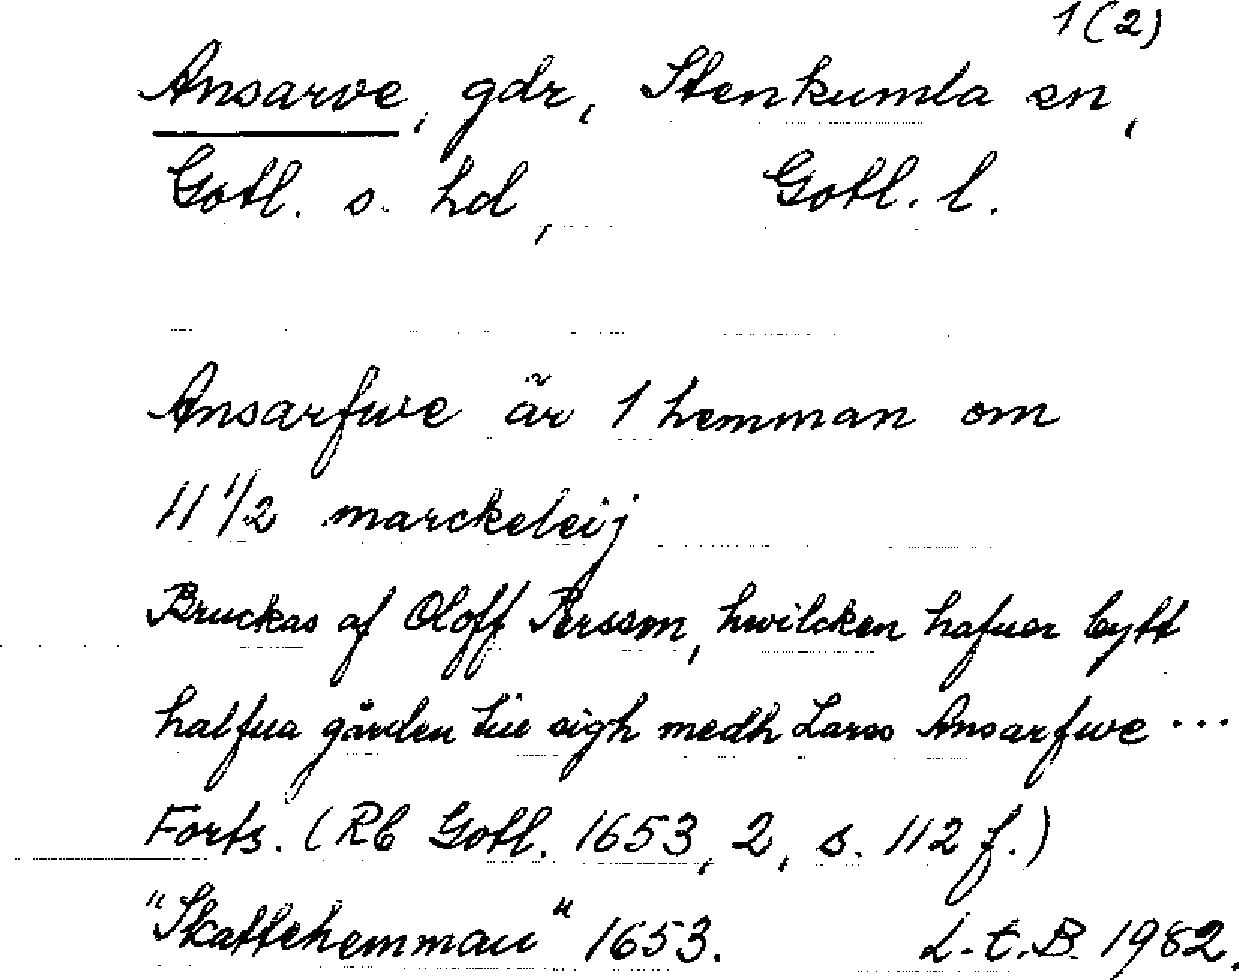 1(2)
Ansarve, gdr, Stenkumla sn,
Gotl. s. hd, Gotl. l.
Ansarfwe är 1 hemman om
11 1/2 marckeleij
Bruckas af Oloff Persson, hwilcken hafuer bytt
halfua gården till sigh medh Larss Ansarfwe ...
Forts. (Rb Gotl. 1653, 2, s. 112 f.)
"Skattehemman" 1653. L.t.B. 1982.